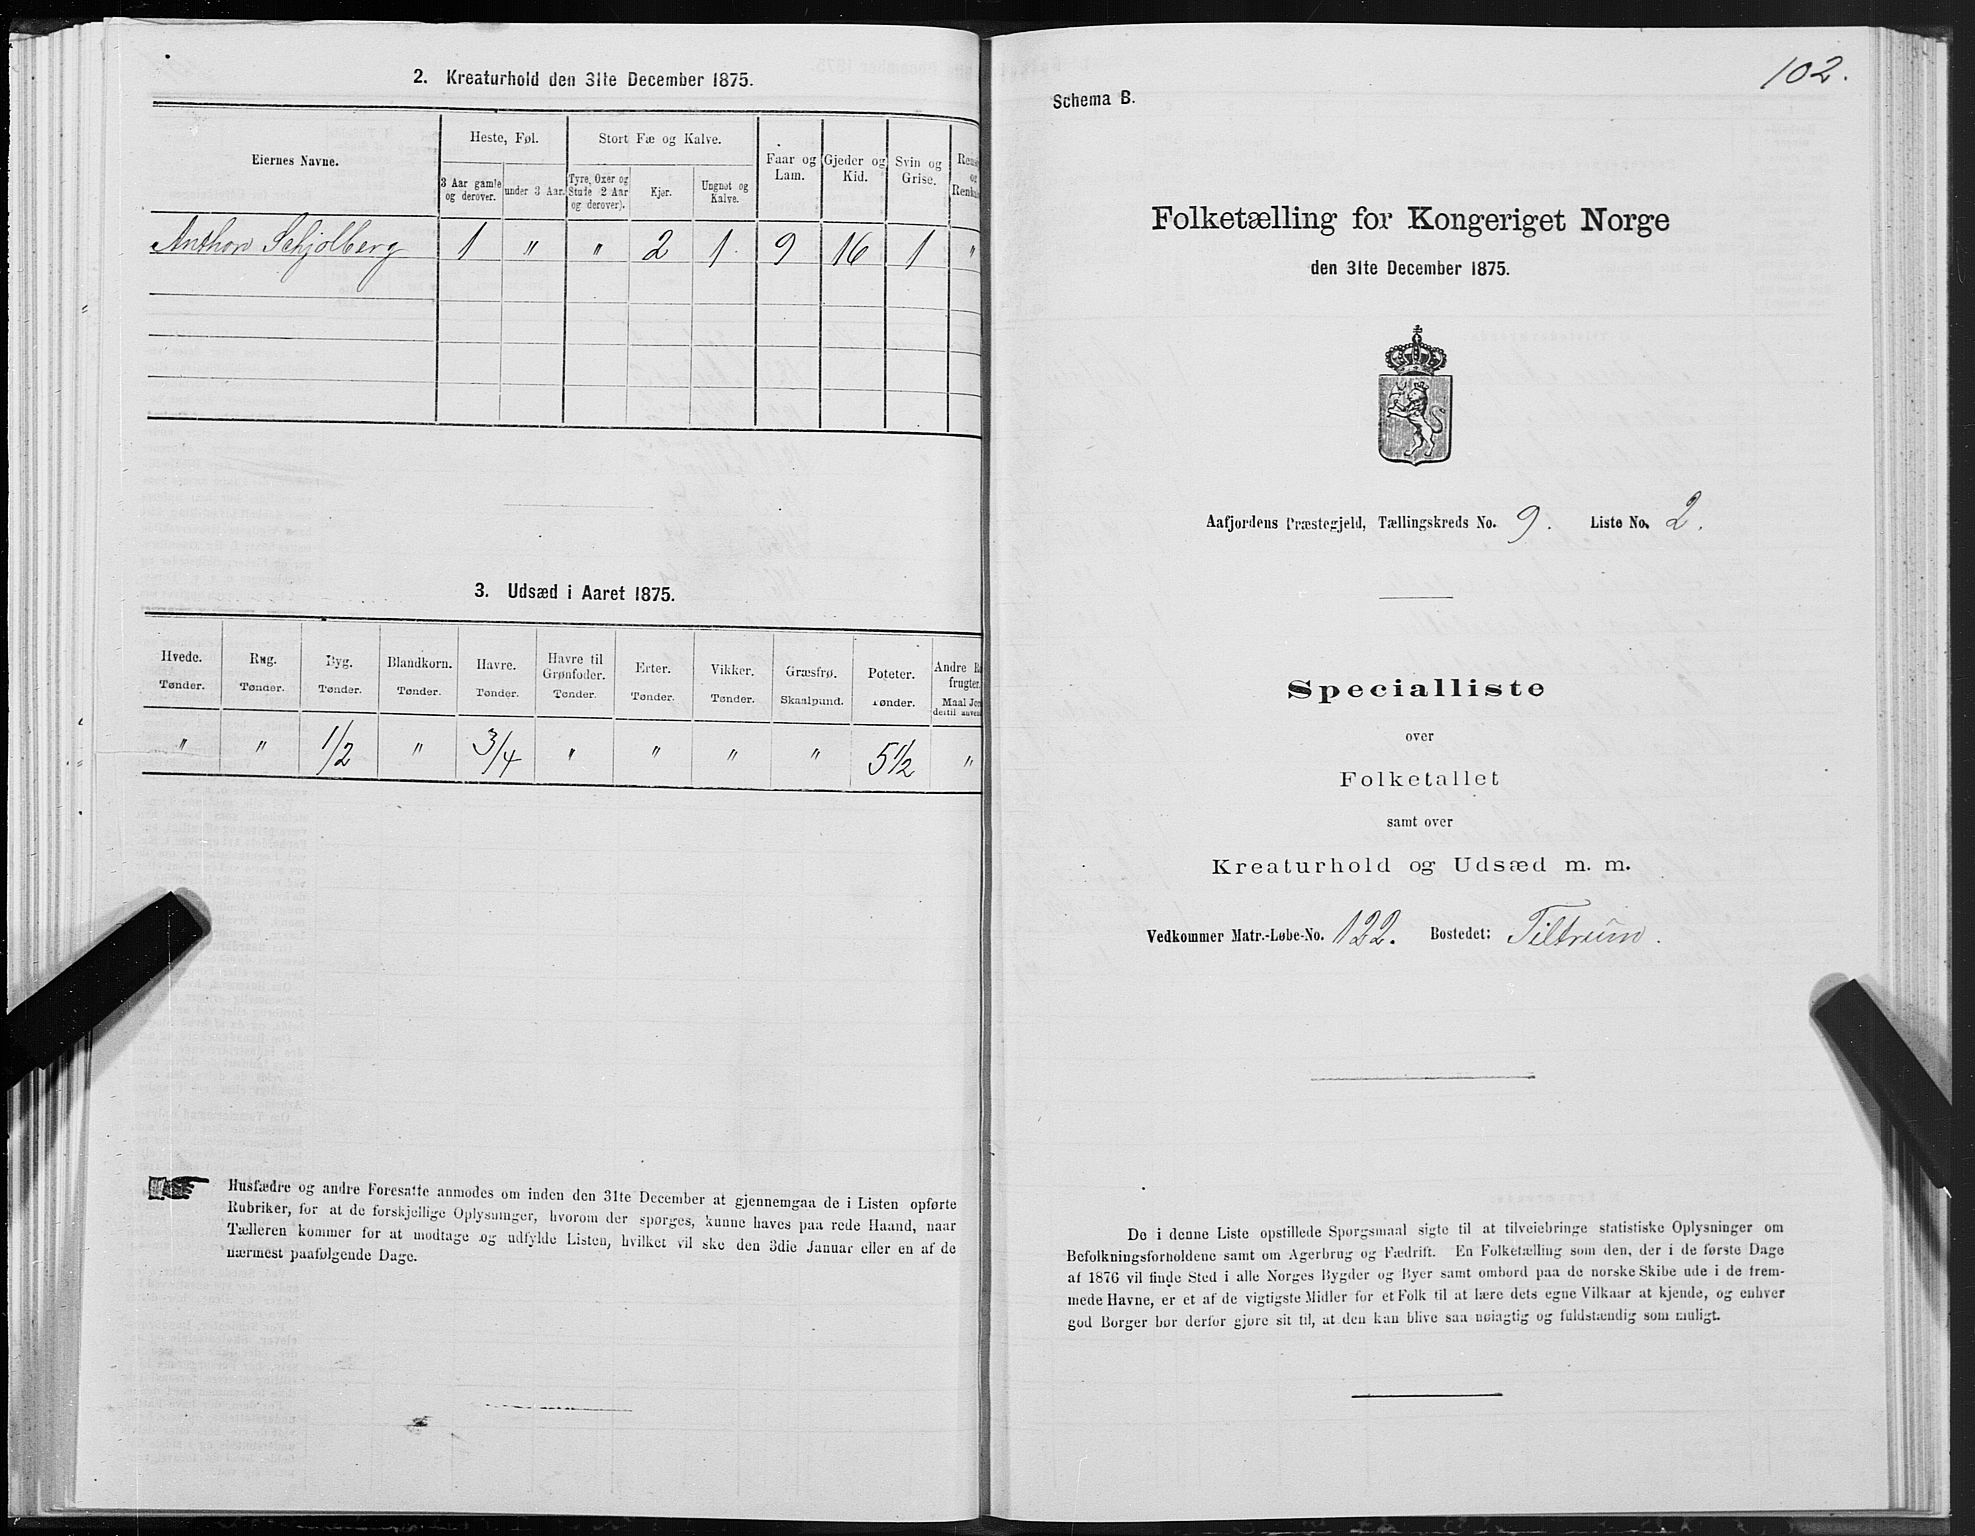 2. Kreaturhold den 31te December 1875.
Eiernes Navne.
Heste, Føl.
Stort Fæ og Kalve.
Faar og Lam.
Gjeder og Kid.
Svin og Grise.
3 Aar gamle og derover.
under 3 Aar.
Tyre, Oxer og Stude 2 Aar og derover).
Kjør.
Ungnøt og Kalve.
Anthon Schjølberg 1 " " 2 1 9 16 1 "
3. Udsæd i Aaret 1875.
Hvede. Rug. Byg. Blandkorn. Havre. Havre til Grønfoder. Erter. Vikker. Græsfrø. Poteter. Andre
frugter.
Tønder. Tønder. Tønder. Tønder. Tønder. Tønder. Tønder. Tønder. Skaalpund. Tønder. Maal
" " 1/2 " 3/4 " " " " 5 1/2 "
Husfædre og andre Foresatte anmodes om inden den 31te December at gjennemgaa de i Listen opførte
Rubriker, for at de forskjellige Oplysninger, hvorom der spørges, kunne haves paa rede Haand, naar
Tælleren kommer for at modtage og udfylde Listen, hvilket vil ske den 3die Januar eller en af de
nærmest paafølgende Dage.
102.
Schema B.
Folketælling for Kongeriget Norge
den 31te December 1875.
Aafjordens Præstegjeld, Tællingskreds No. 9. Liste No. 2.
Specialliste
over
Folketallet
samt over
Kreaturhold og Udsæd m. m.
Vedkommer Matr.-Løbe-No. 122. Bostedet: Tiltrum.
De i denne Liste opstillede Spørgsmaal sigte til at tilveiebringe statistiske Oplysninger om
Befolkningsforholdene samt om Agerbrug og Fædrift. En Folketælling som den, der i de første Dage
af 1876 vil finde Sted i alle Norges Bygder og Byer samt ombord paa de norske Skibe ude i de frem-
mede Havne, er et af de vigtigste Midler for et Folk til at lære dets egne Vilkaar at kjende, og enhver
god Borger bør derfor gjøre sit til, at den kan blive saa nøiagtig og fuldstændig som muligt.